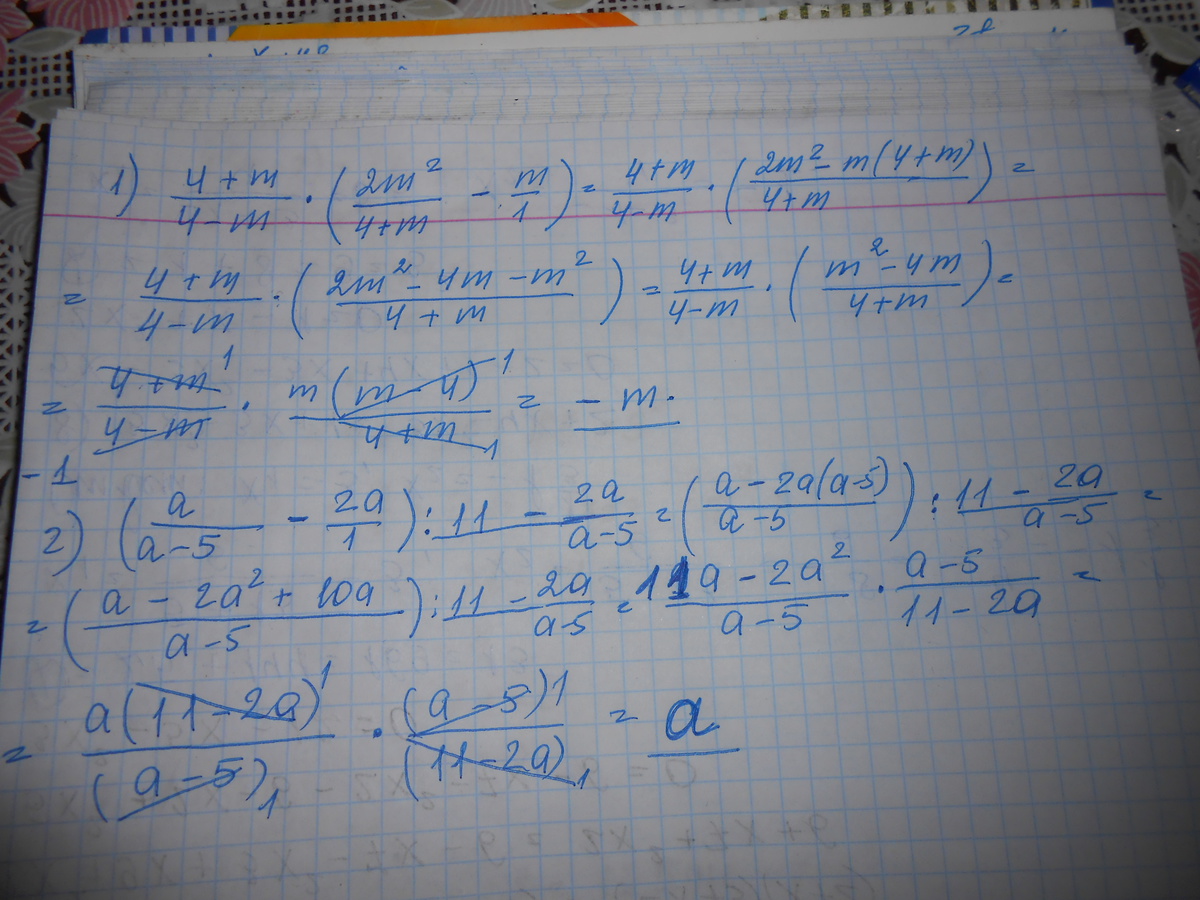 1) \frac{4+m}{4-m} \cdot \left(\frac{2m^2}{4+m} - \frac{m}{1}\right) = \frac{4+m}{4-m} \cdot \left(\frac{2m^2-m(4+m)}{4+m}\right) =
= \frac{4+m}{4-m} \cdot \left(\frac{2m^2-4m-m^2}{4+m}\right) = \frac{4+m}{4-m} \cdot \left(\frac{m^2-4m}{4+m}\right) =
= \frac{4+m^1}{4-m} \cdot \frac{m(m-4)^1}{4+m_1} = -m.
-1
2) \left(\frac{a}{a-5} - \frac{2a}{1}\right) : \underline{11} - \frac{2a}{a-5} = \left(\frac{a-2a(a-5)}{a-5}\right) : \underline{11} - \frac{2a}{a-5} =
= \left(\frac{a-2a^2+10a}{a-5}\right) : \underline{11} - \frac{2a}{a-5} = \frac{11a-2a^2}{a-5} \cdot \frac{a-5}{11-2a} =
= \frac{a(11-2a)^1}{(a-5)_1} \cdot \frac{(a-5)^1}{(11-2a)_1} = a